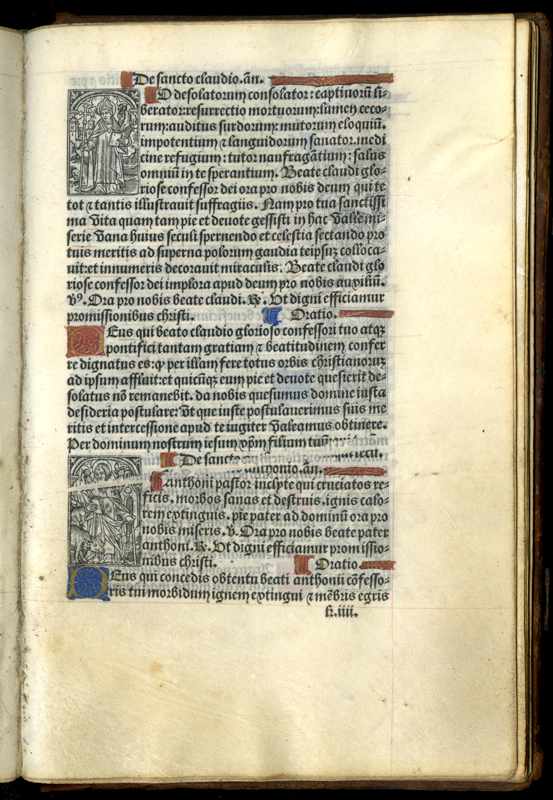 De sancto claudio. an̄.
O desolatorum consolator: captiuorū li-
berator: resurrectio mortuorum: lumen ceco-
rum: auditus surdorum: mutorum eloquiū.
impotentium ⁊ languidorum sanator. medi
cine refugium: tutor naufragātium: salus
omniū in te sperantium. Beate claudi glo-
riose confessor dei ora pro nobis deum qui te
tot ⁊ tantis illustrauit suffragiis. Nam pro tua sanctissi
ma vita quam tam pie et deuote gessisti in hac valle mi-
serie vana huius seculi spernendo et celestia sectando pro
tuis meritis ad superna polorum gaudia teipsuʒ colloca-
uit: et innumeris decorauit miraculis. Beate claudi glo
riose confessor dei implora apud deum pro nobis auxiliū.
v̄ꝰ. Ora pro nobis beate claudi. ℞. Vt digni efficiamur
promissionibus christi. Oratio.
Eus qui beato claudio glorioso confessori tuo atqʒ
pontifici tantam gratiam ⁊ beatitudinem confer
re dignatus es: ꝙ per illam fere totus orbis christianoruʒ
ad ipsum affluit: et quicūqʒ eum pie et deuote quesierit de-
solatus nō remanebit. da nobis quesumus domine iusta
desideria postulare: Vt que iuste postulauerimus suis me
ritis et intercessione apud te iugiter valeamus obtinere.
Per dominum nostrum iesum xp̄m filium tuū
De sancto anthonio. an̄.
anthoni pastor inclyte qui cruciatos re-
ficis. morbos sanas et destruis. ignis calo-
rem extinguis. pie pater ad dominū ora pro
nobis miseris. v̄. Ora pro nobis beate pater
anthoni. ℞. Vt digni efficiamur promissio-
nibus christi. Oratio
Eus qui concedis obtentu beati anthonii cōfesso-
ris tui morbidum ignem extingui ⁊ mēbris egris
k. iiii.